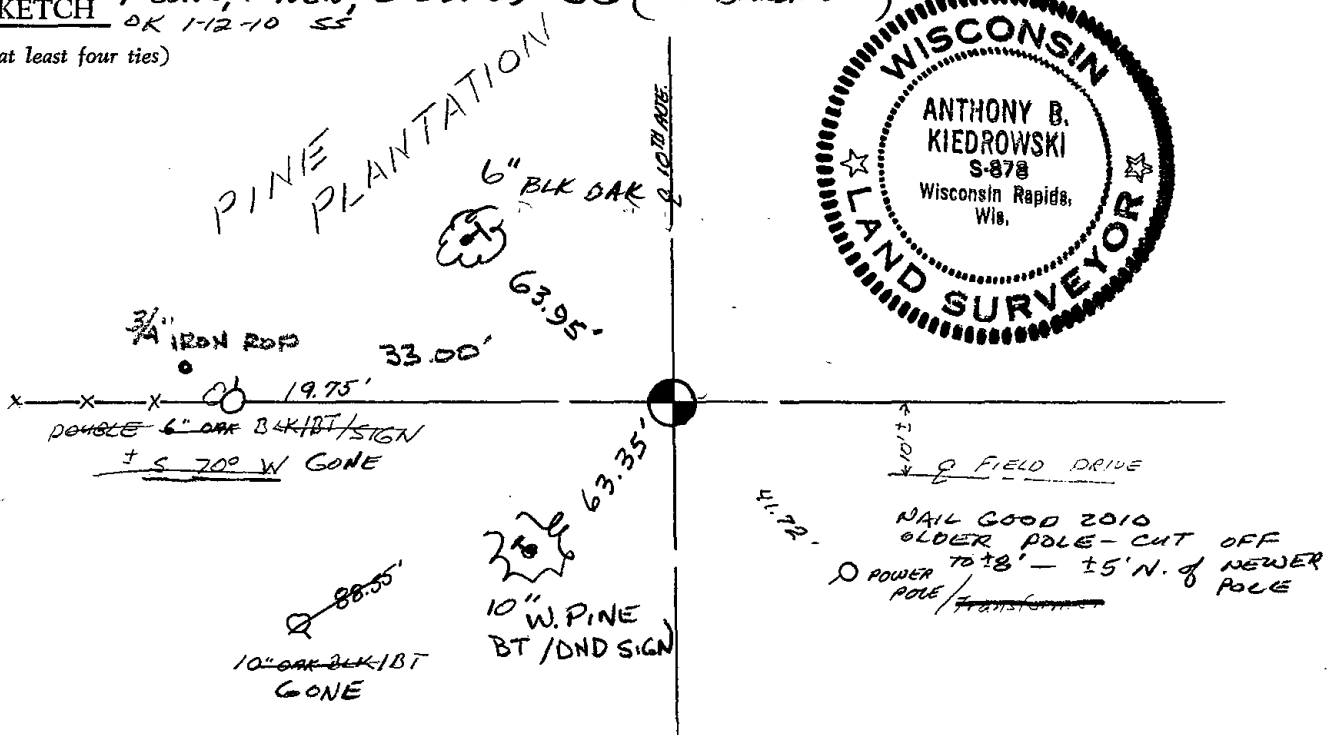 SKETCH
OK 1-12-10 SS
at least four ties)
PINE
PLANTATION
℄ 10TH AVE.
WISCONSIN
ANTHONY B.
KIEDROWSKI
S-878
Wisconsin Rapids,
Wis.
LAND SURVEYOR
6" BLK OAK
63.95'
3/4" IRON ROD
33.00'
19.75'
DOUBLE 6" OAK BLK/BT/SIGN
± S 70° W GONE
63.35'
10'±
℄ FIELD DRIVE
41.72'
NAIL GOOD 2010
OLDER POLE - CUT OFF
TO ±8' - ±5' N. of NEWER
POLE
POWER
POLE/Transformer
88.55'
10" W. PINE
BT/DND SIGN
10" OAK BLK/BT
GONE